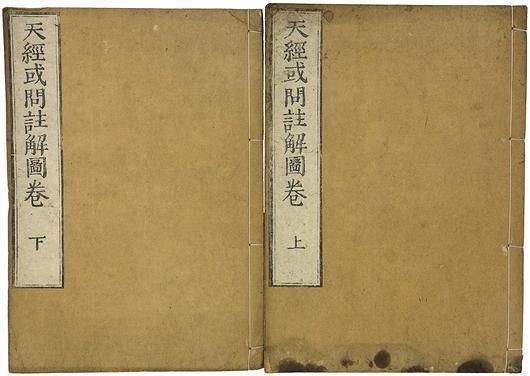 天經或問註解圖卷 上
天經或問註解圖卷 下